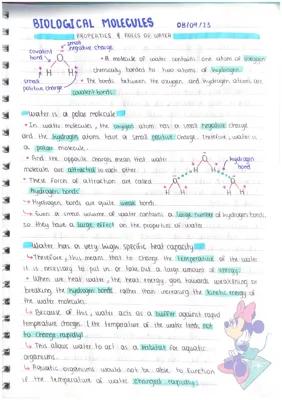 BIOLOGICAL MOLECULES 08/09/23
PROPERTIES & ROLES OF WATER
small negative charge
covalent bond
O
H H
small positive charge
• A molecule of water contains one atom of oxygen
chemically bonded to two atoms of hydrogen.
• The bonds between the oxygen and hydrogen atoms are
covalent bonds.
Water is a polar molecule
• In water molecules, the oxygen atom has a small negative charge
and the hydrogen atoms have a small positive charge. Therefore, water is
a polar molecule.
• And the opposite charges mean that water
molecules are attracted to each other.
• These forces of attraction are called
hydrogen bonds.
hydrogen bond
↳ Hydrogen bonds are quite weak bonds.
↳ Even a small volume of water contains a large number of hydrogen bonds,
so they have a large effect on the properties of water.
Water has a very high specific heat capacity
↳ Therefore, this means that to change the temperature of the water
it is necessary to put in or take out a large amount of energy.
• When we heat water, the heat energy goes towards weakening or
breaking the hydrogen bonds rather than increasing the kinetic energy of
the water molecules.
↳ Because of this, water acts as a buffer against rapid
temperature changes. (The temperature of the water tends not
to change rapidly)
• This allows water to act as a habitat for aquatic
organisms.
↳ Aquatic organisms would not be able to function
if the temperature of water changed rapidly.